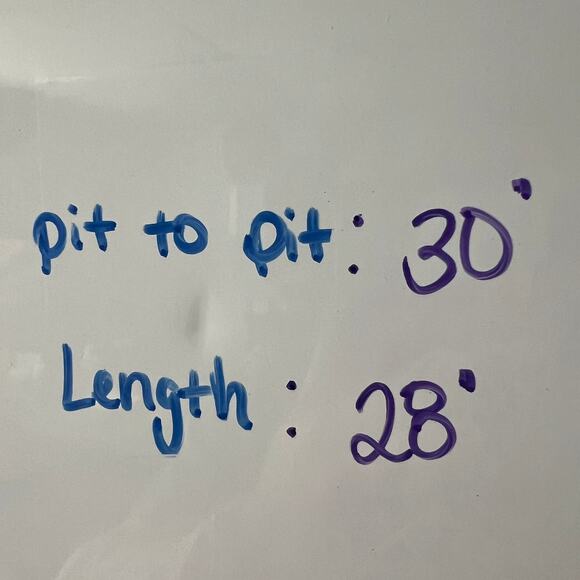 pit to pit: 30"
Length: 28"